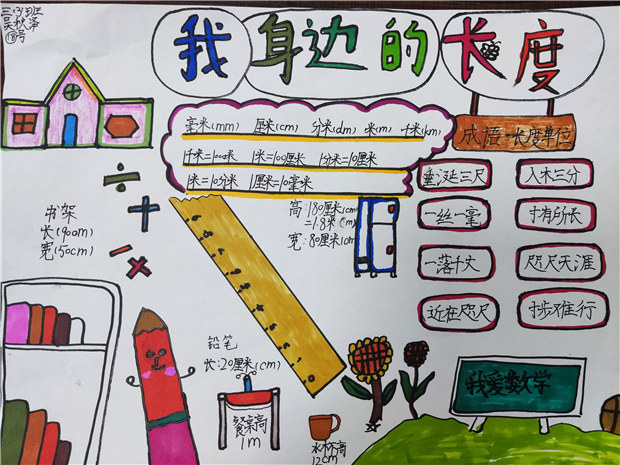 三(3)班
吴秋泽
18号
我身边的长度
毫米(mm) 厘米(cm) 分米(dm) 米(m) 千米(km)
1千米=1000米 1米=100厘米 1分米=10厘米
1米=10分米 1厘米=10毫米
成语-长度单位
垂涎三尺
入木三分
一丝一毫
寸有所长
一落千丈
咫尺天涯
近在咫尺
寸步难行
书架
长(90cm)
宽(50cm)
高:180厘米(cm)
=1.8米(m)
宽:80厘米(cm)
铅笔
长:20厘米(cm)
餐桌高
1m
水杯高
12cm
我爱数学